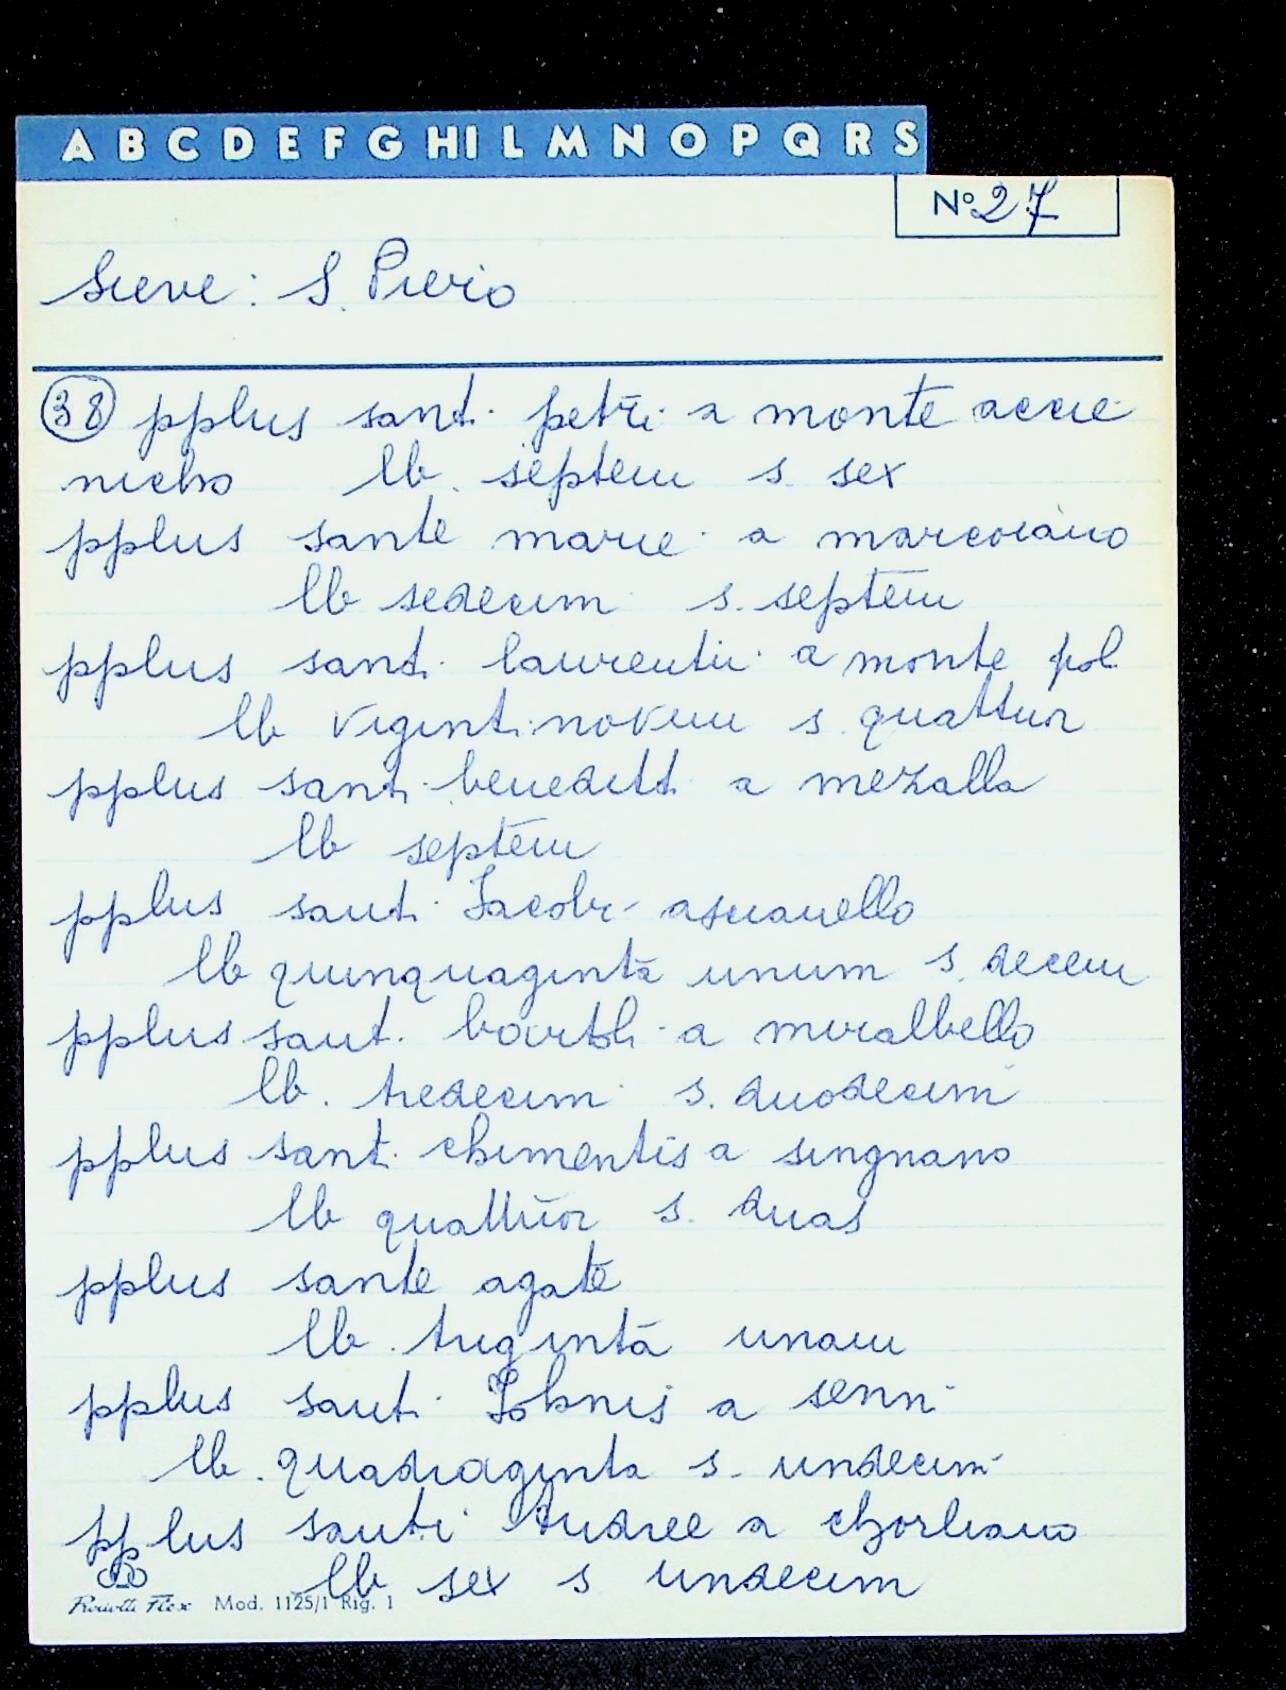 A B C D E F G HI L M N O P Q R S
No 27
Sieve: S. Piero
38 pplus sant. petri a monte accie
nicho lb. septem s. sex
pplus sante marie a marcoiano
lb sedecim s. septem
pplus santi laurentii a monte pol.
lb vigintinovem s. quattuor
pplus santi beneditt. a mezalla
lb septem
pplus santi Jacobi ascianello
lb quinquaginta unum s. decem
pplus sant. bartoli a miralbello
lb. tredecim s. duodecim
pplus sant. chimentis a singnano
lb quattuor s. duas
pplus sante agate
lb. triginta unam
pplus santi Johnis a senni
lb. quadraginta s. undecim
pplus santi Andree a chorliano
lb sex s undecim
Mod. 1125/1 Rig. 1